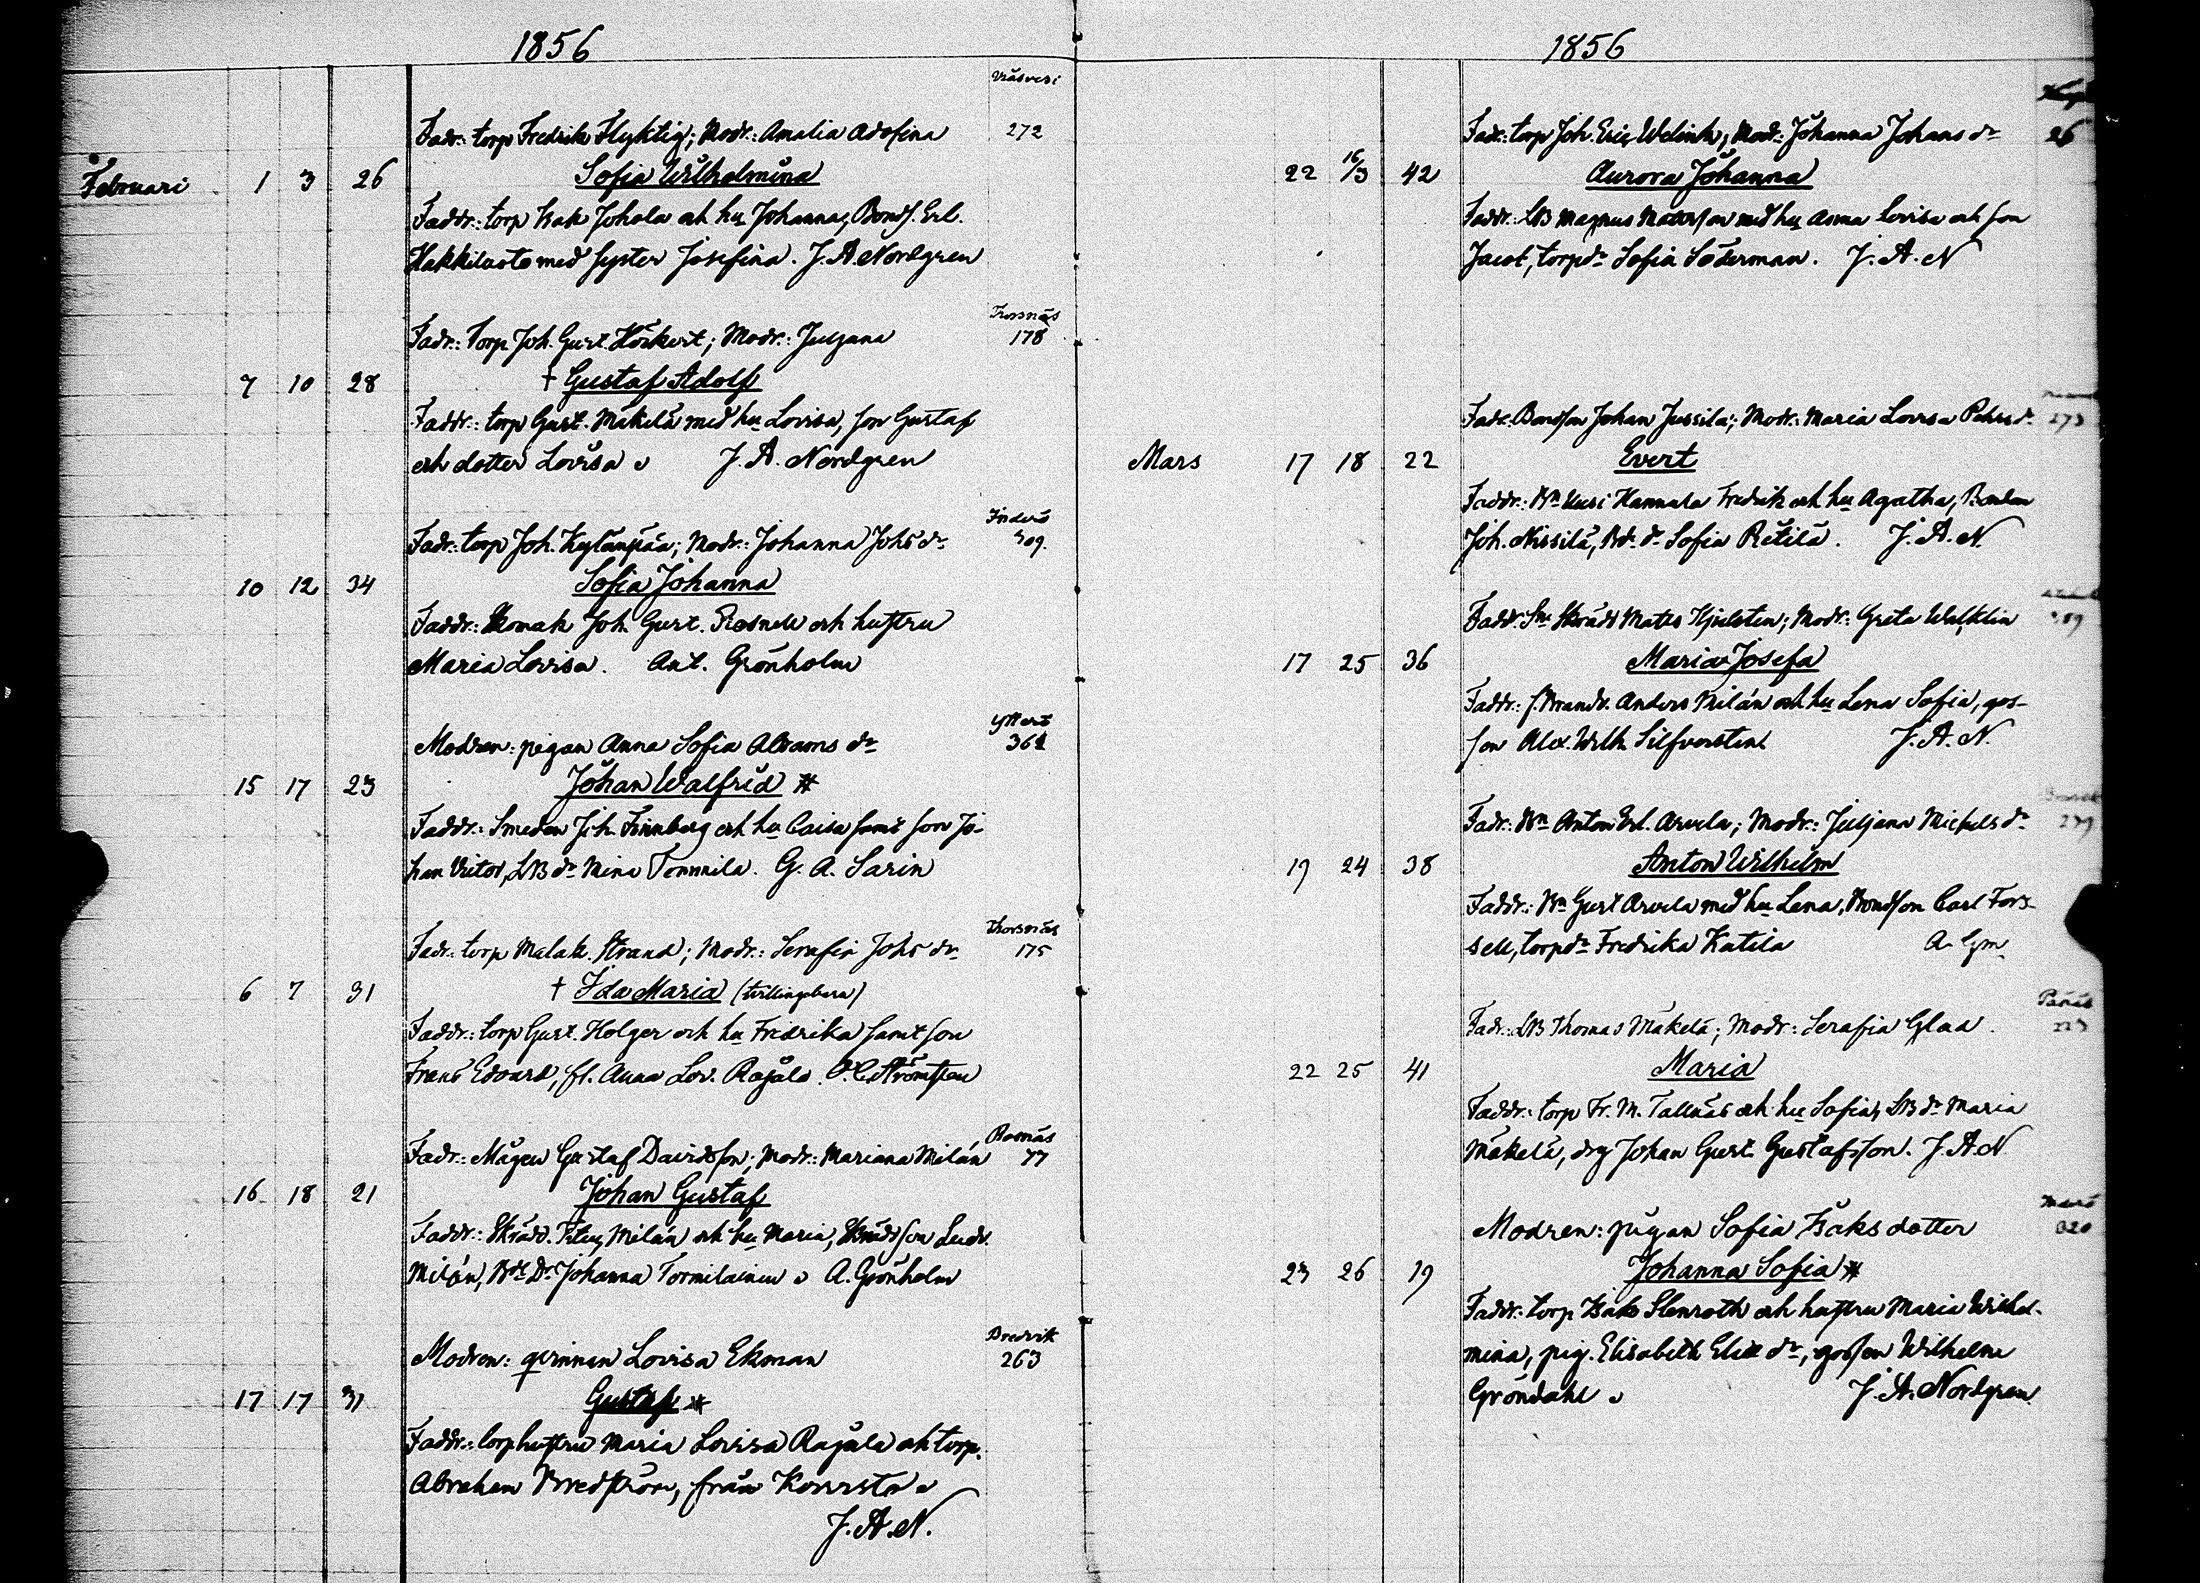 1856
Fadr: torp Fredrik Flyktig; Modr: Amalia Adolfina 272
Februari 1 3 26 Sofia Wilhelmina
Faddr: torp Isak Johola och hu Johanna, Bonds. Erl.
Hakkiluoto med syster Josefina. J. A. Nordgren
Fadr: torp Joh. Gust. Höckert; Modr: Juljana 178
7 10 28 † Gustaf Adolf
Faddr: torp Gust. Mäkelä med hu Lovisa, son Gustaf
och dotter Lovisa J. A. Nordgren
Inderö
Fadr: torp Joh. Kylänpää; Modr: Johanna Johs dr 309.
10 12 34 Sofia Johanna
Faddr: Joh. Gust. Rosnell och hustru
Maria Lovisa. Ant. Grönholm
Ytterö
Modren: pigan Anna Sofia Abrams dr 361
15 17 23 Johan Walfrid #
Faddr: Smeden Joh. Finnberg och hu Caisa samt son Jo-
han Victor, LB dr Mina Tommila. G. A. Sarin
Korsnäs
Fadr: torp Malak. Strand; Modr: Serafia Johs dr 175
6 7 31 † Ida Maria (tvillingbarn)
Faddr: torp Gust. Holger och hu Fredrika samt son
Frans Edvard, fl. Anna Lov. Rajala. O. C. Strömsten
Rosnäs
Fadr: Mågen Gustaf Davidsson; Modr: Mariana Milán 77
16 18 21 Johan Gustaf
Faddr: Skrädd. Milán och hu Maria, Skrädson Ludv.
Milán, Bde Dr Johanna Tormilainen A. Grönholm
Bredvik
Modren: qvinnan Lovisa Ekman 263
17 17 31 Gustaf #
Faddr: torphustru Maria Lovisa Rajala och torp.
Abraham Bredström, från
J. A. N.
1856
Fadr: torp Joh. Eric Welink; Modr: Johanna Johans dr 26
22 16/3 42 Aurora Johanna
Faddr: LB Magnus Matsson med hu Anna Lovisa och son
Jacob, torpdr Sofia Söderman. J. A. N
Fadr: Bondson Johan Jussila; Modr: Maria Lovisa Pehrs dr 273
Mars 17 18 22 Evert
Faddr: Bn Uusi Hannula Fredrik och hu Agatha, Bonden
Joh. Nissilä, Bd. dr Sofia Retilä. J. A. N.
Fadr: Skrädd Matts Kjulsten; Modr: Greta Walklin
17 25 36 Maria Josefa
Faddr: Anders Milán och hu Lena Sofia, gos-
son Alex. Wilh. Silfversten J. A. N.
Fadr: Bn Anton Erl. Arvela; Modr: Juljana Mickels dr 279
19 24 38 Anton Wilhelm
Faddr: Bn Gust Arvela med hu Lena, Bondson Carl Fors-
sell, torpdr Fredrika Katila A. Gm
Fadr: LB Thomas Mäkelä; Modr: Serafia Glad. 223
22 25 41 Maria
Faddr: torp Fr. M. Tallnäs och hu Sofia, LB dr Maria
Mäkelä, drg Johan Gust Gustafsson. J. A. N
Modren: pigan Sofia Isaks dotter 320
23 26 19 Johanna Sofia #
Faddr: torp Isak Stenroth och hustru Maria Wilhel-
mina, pig. Elisabeth Elias dr, gossen Wilhelm
Gröndahl J. A. Nordgren